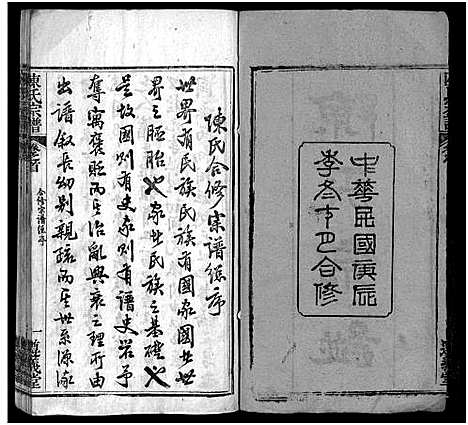 中華民國庚辰
季冬中巳合修
陳氏合修宗譜總序
世界有民族民族有國家國也世
界之胚胎也家也民族之基礎也
是故國則有史家則有譜史若予
奪寓褒貶而其治亂興衰之理所由
出譜叙長幼別親疏而其世系源流
陳氏宗譜
卷首
合修宗譜總序
一
義堂